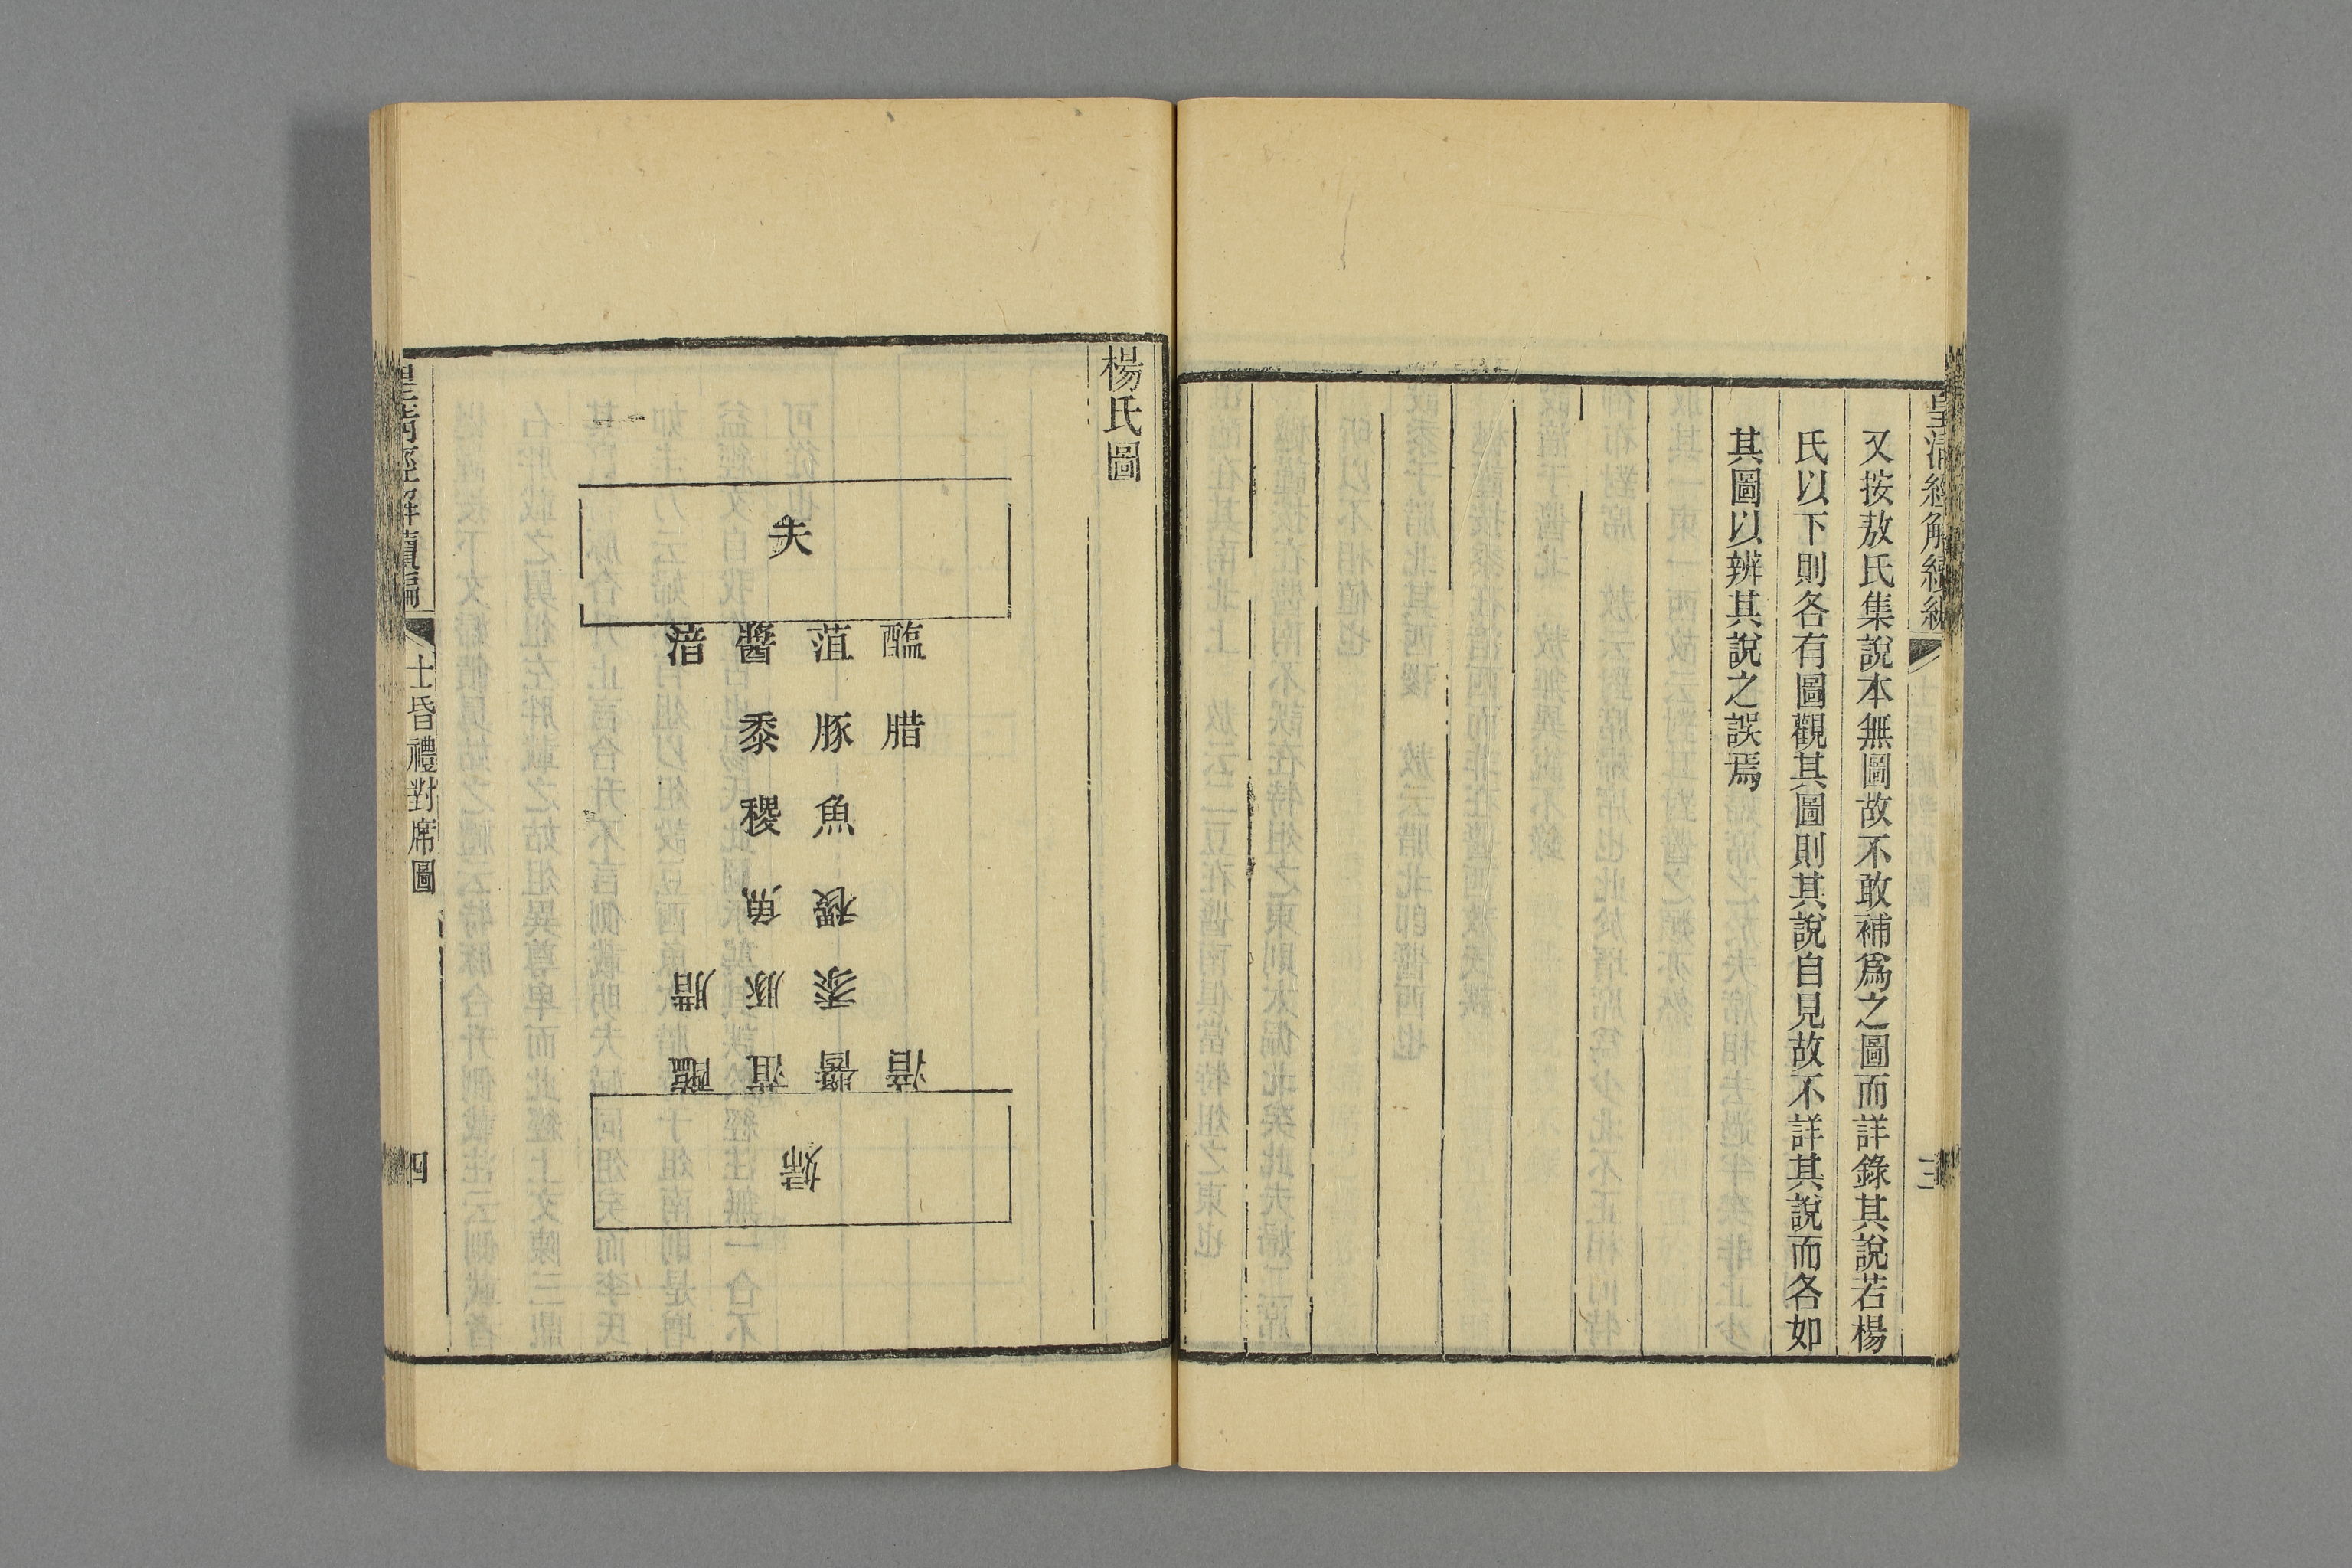 皇清經解續編
三
又按敖氏集說本無圖故不敢補爲之圖而詳錄其說若楊
氏以下則各有圖觀其圖則其說自見故不詳其說而各如
其圖以辨其說之誤焉
楊氏圖
夫
醢 菹 醬 湆
腊 豚 黍
魚 稷
稷 魚
黍 豚 腊
湆 醬 菹 醢
婦
皇清經解續編
士昏禮對席圖
四